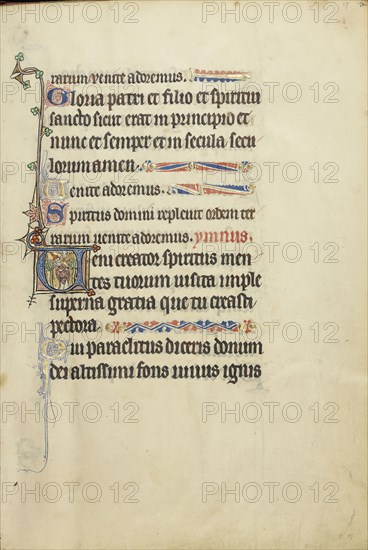 rarum venite adoremus.
Gloria patri et filio et spiritui
sancto sicut erat in principio et
nunc et semper et in secula secu
lorum amen.
Venite adoremus.
Spiritus domini replevit orbem ter
rarum venite adoremus. ymnus.
Veni creator spiritus men
tes tuorum visita imple
superna gratia que tu creasti
pectora.
Qui paraclitus diceris donum
dei altissimi fons vivus ignis
PHOTO 12